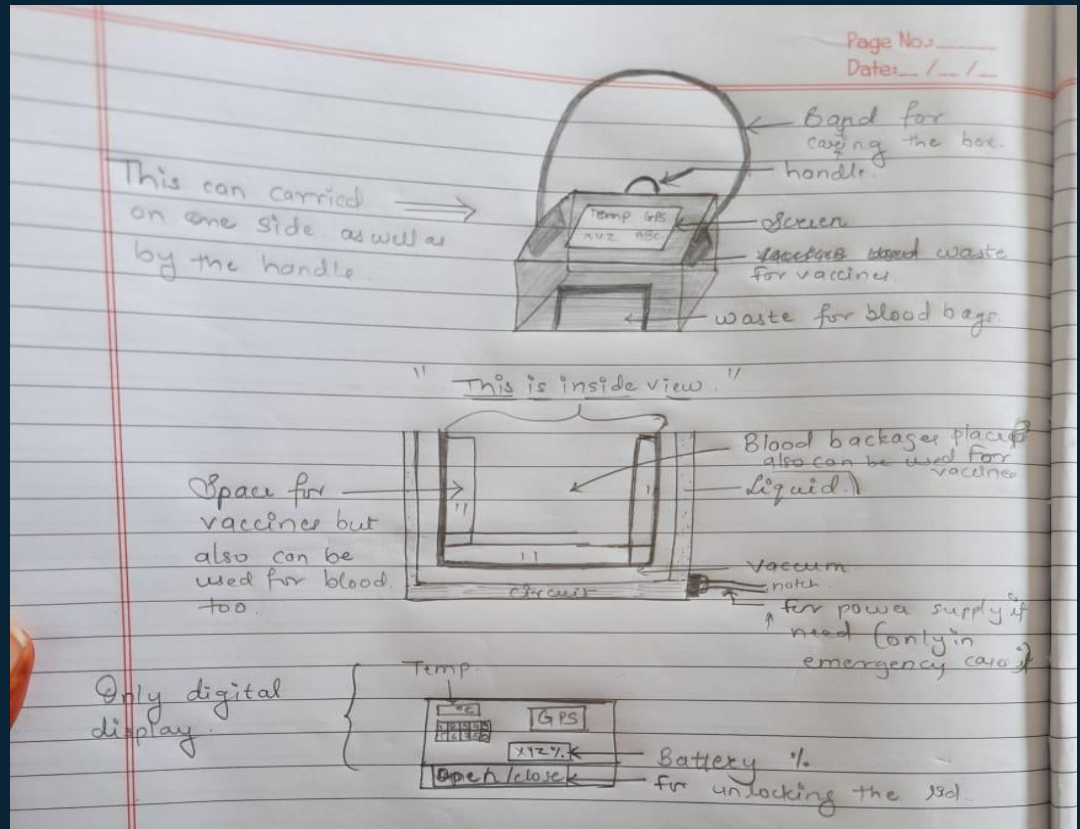 Page No.:
Date: / /
Band for
caring the box.
handle.
This can carried
on one side as well as
by the handle.
Temp GPS
XYZ ABC
Screen
waste
for vaccines
waste for blood bags.
" This is inside view. "
Blood backages place
also can be used for
vaccines
Liquid.
Space for
vaccines but
also can be
used for blood.
too.
vaccum
notch
circuit
for power supply if
need (only in
emergency cases)
Temp.
Only digital
display.
°C
GPS
XYZ%
Battery %
Open/close
for unlocking the